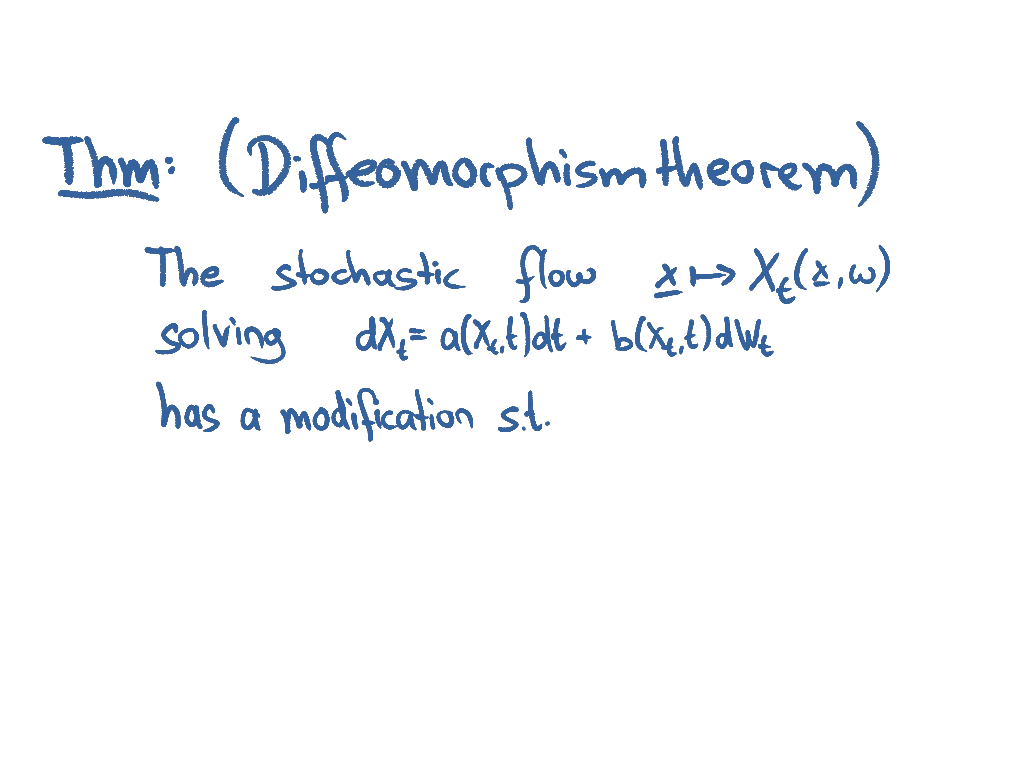 Thm: (Diffeomorphism theorem)
The stochastic flow x ↦ X_t(x, ω)
solving dX_t = a(X_t, t)dt + b(X_t, t)dW_t
has a modification s.t.